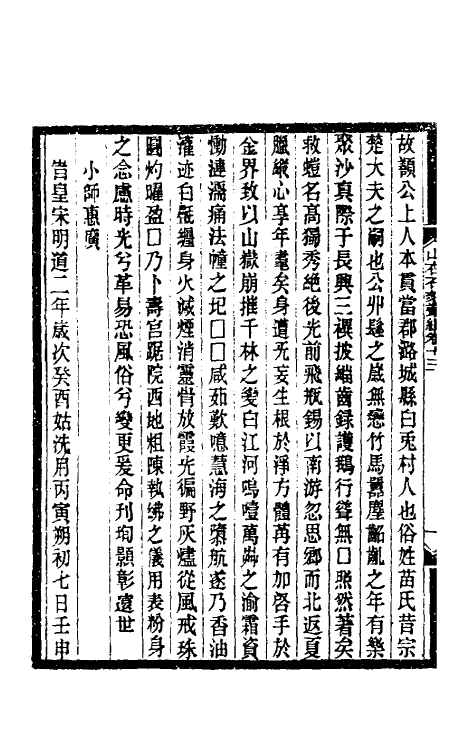 故顥公上人本貫當郡潞城縣白兎村人也俗姓苗氏昔宗
楚大夫之嗣也公丱䰂之歲無戀竹馬囂塵齠齓之年有樂
聚沙真際于長興三禩披緇齒録護鵝行聳無□照然著矣
救螘名高獨秀絶後光前飛瓶錫以南游忽思鄉而北返夏
臘縱心享年耄矣身遣无妄生根於淨方體苒有加啓手於
金界致以山嶽崩摧千林之變白江河嗚噎萬艸之渝霜資
慟漣濡痛法幢之圮□□咸茹歎噫慧海之隳航遂乃香油
灌迹白㲲纏身火滅煙消靈骨放霞光徧野灰燼從風戒珠
圓灼曜盈□乃卜壽宮踞院西地粗陳執紼之儀用表粉身
之念慮時光兮革易恐風俗兮變更爰命刊珣顥彰遠世
小師惠廣
旹皇宋明道二年歲次癸酉姑洗用丙寅朔初七日壬申
山右石刻叢編卷十三